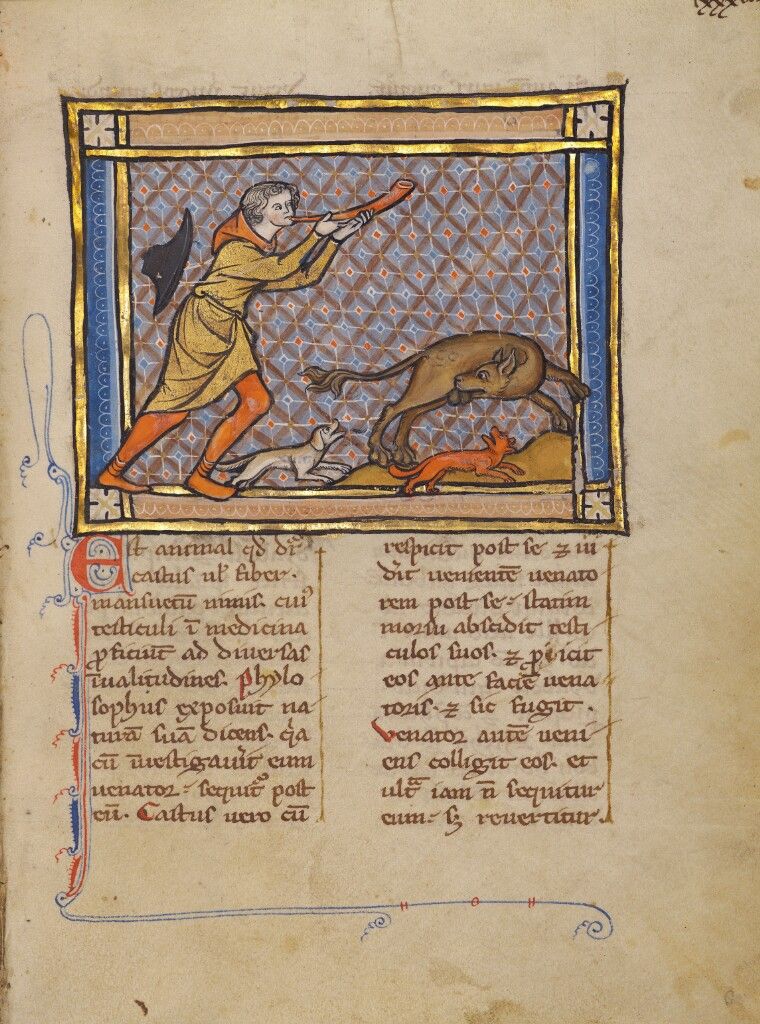 Est animal qd dr̄
castus ul' fiber.
mansuetū nimis. cuiꝰ
testiculi ī medicina
ꝓficiūt ad diuersas
īualitudines. phylo
sophus exposuit na
turā suā dicens. qa
cū īuestigauit eum
uenator. sequit᷑ post
eū. Castus uero cū
respicit post se ⁊ ui
dīt uenientē uenato
rem post se. statim
morsu abscidit testi
culos suos. ⁊ ꝓicit
eos ante faciē uena
toris. ⁊ sic fugit.
Venator autē ueni
ens colligit eos. et
ultᵃ iam n̄ sequitur
eum. sꝫ reuertitur.